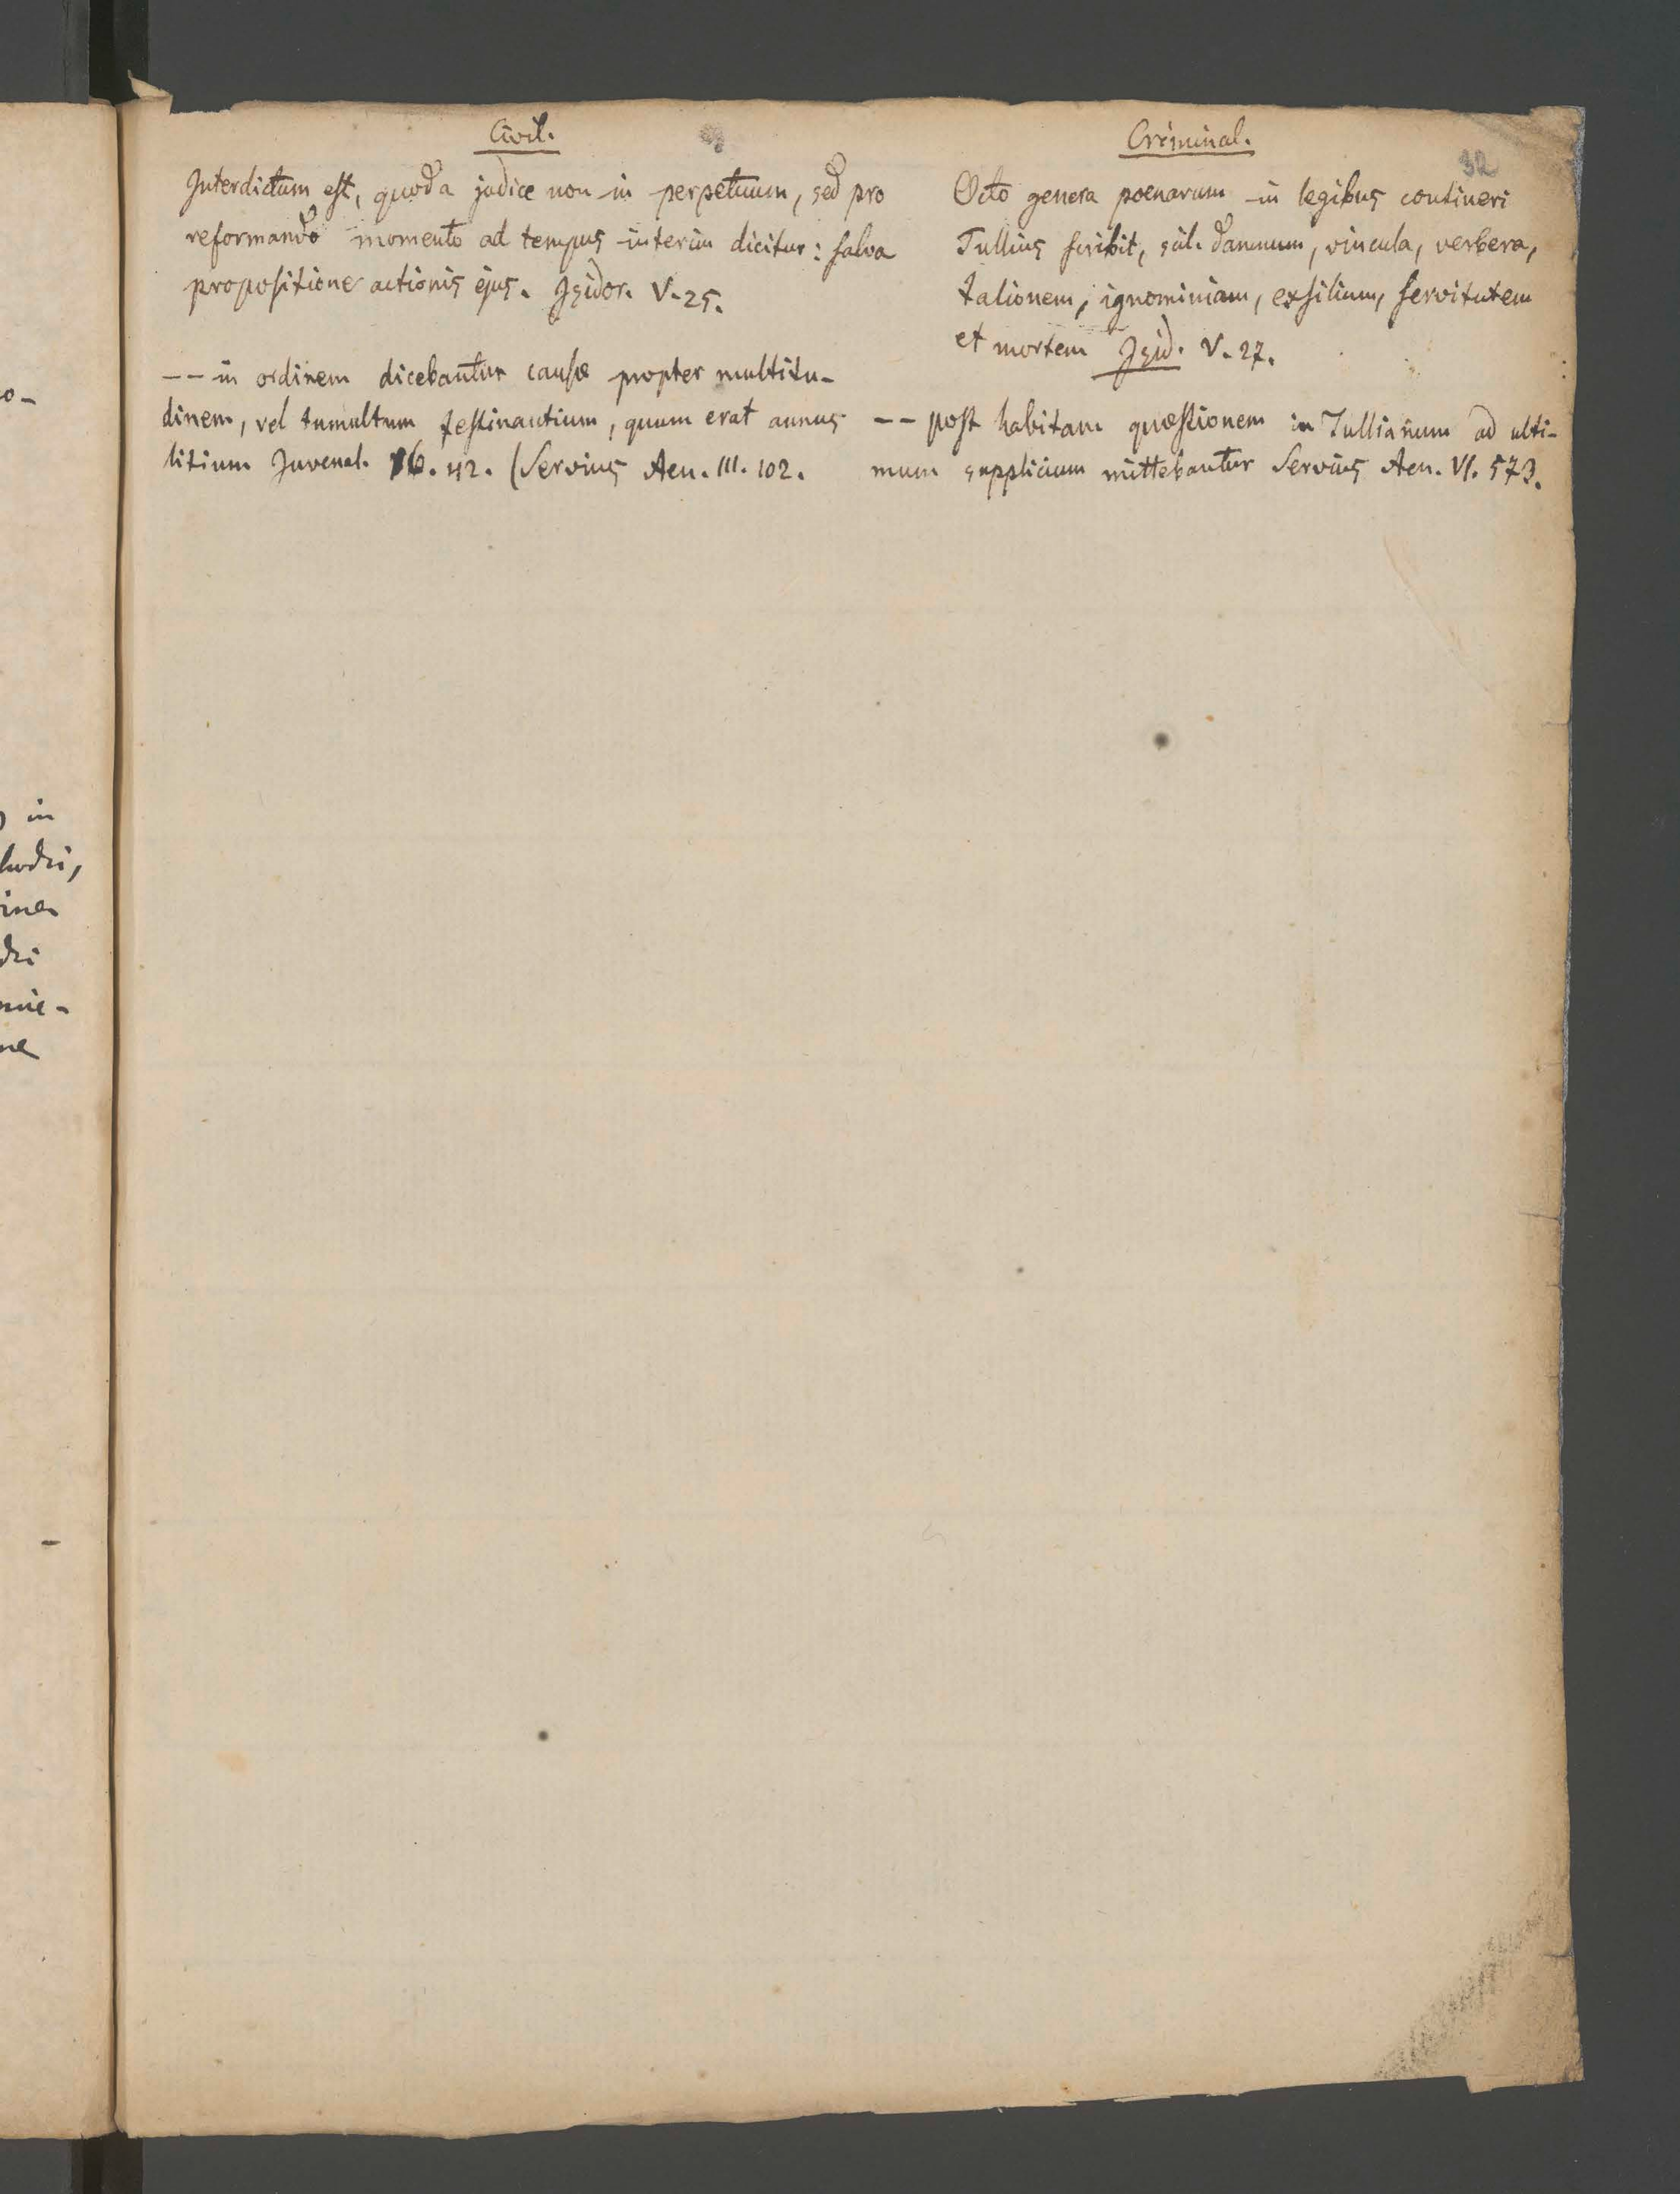 Civil.
Interdictum est, quod a judice non in perpetuum, sed pro
reformando momento ad tempus interim dicitur: salva
propositione actionis ejus. Isidor. V. 25.
-- in ordinem dicebantur causæ propter multitu-
dinem, vel tumultum festinantium, quum erat annus
litium Juvenal. 16. 42. (Servius Aen. III. 102.
Criminal.
32
Octo genera poenarum in legibus contineri
Tullius scribit, scil. damnum, vincula, verbera,
talionem, ignominiam, exsilium, servitutem
et mortem Isid. V. 27.
-- post habitam quæstionem in Tullianum ad ulti-
mum supplicium mittebantur Servius Aen. VI. 573.
o-
in
ine
dri
mie-
ne